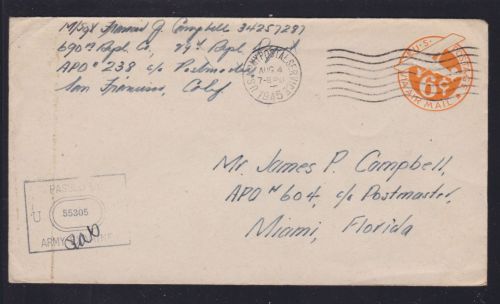 M/Sgt Francis J. Campbell 34257287
690th Repl. Co, Repl.
APO # 238 c/o Postmaster
San Francisco, Calif
U.S. ARMY POSTAL SERVICE
AUG 4
1945
U.S. POSTAGE
VIA AIR MAIL
6¢
Mr. James P. Campbell,
APO # 604, c/o Postmaster,
Miami, Florida
PASSED BY
U
55305
ARMY